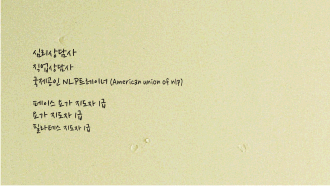 심리상담사
직업상담사
국제공인 NLP트레이너 (American union of nlp)
페이스 요가 지도자 1급
요가 지도자 1급
필라테스 지도자 1급